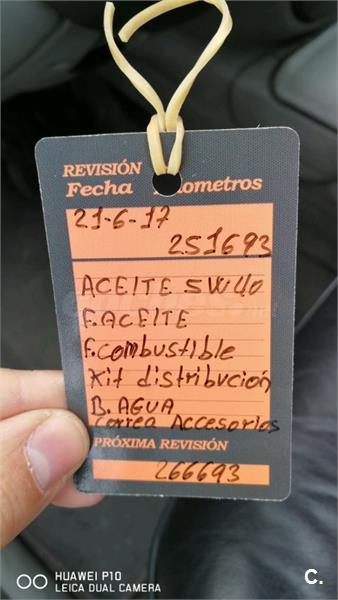 REVISIÓN
Fecha Kilometros
21-6-17
251693
ACEITE 5W40
F. ACEITE
F. combustible
Kit distribucion
B. AGUA
Correa Accesorios
PRÓXIMA REVISIÓN
266693
HUAWEI P10
LEICA DUAL CAMERA
C.